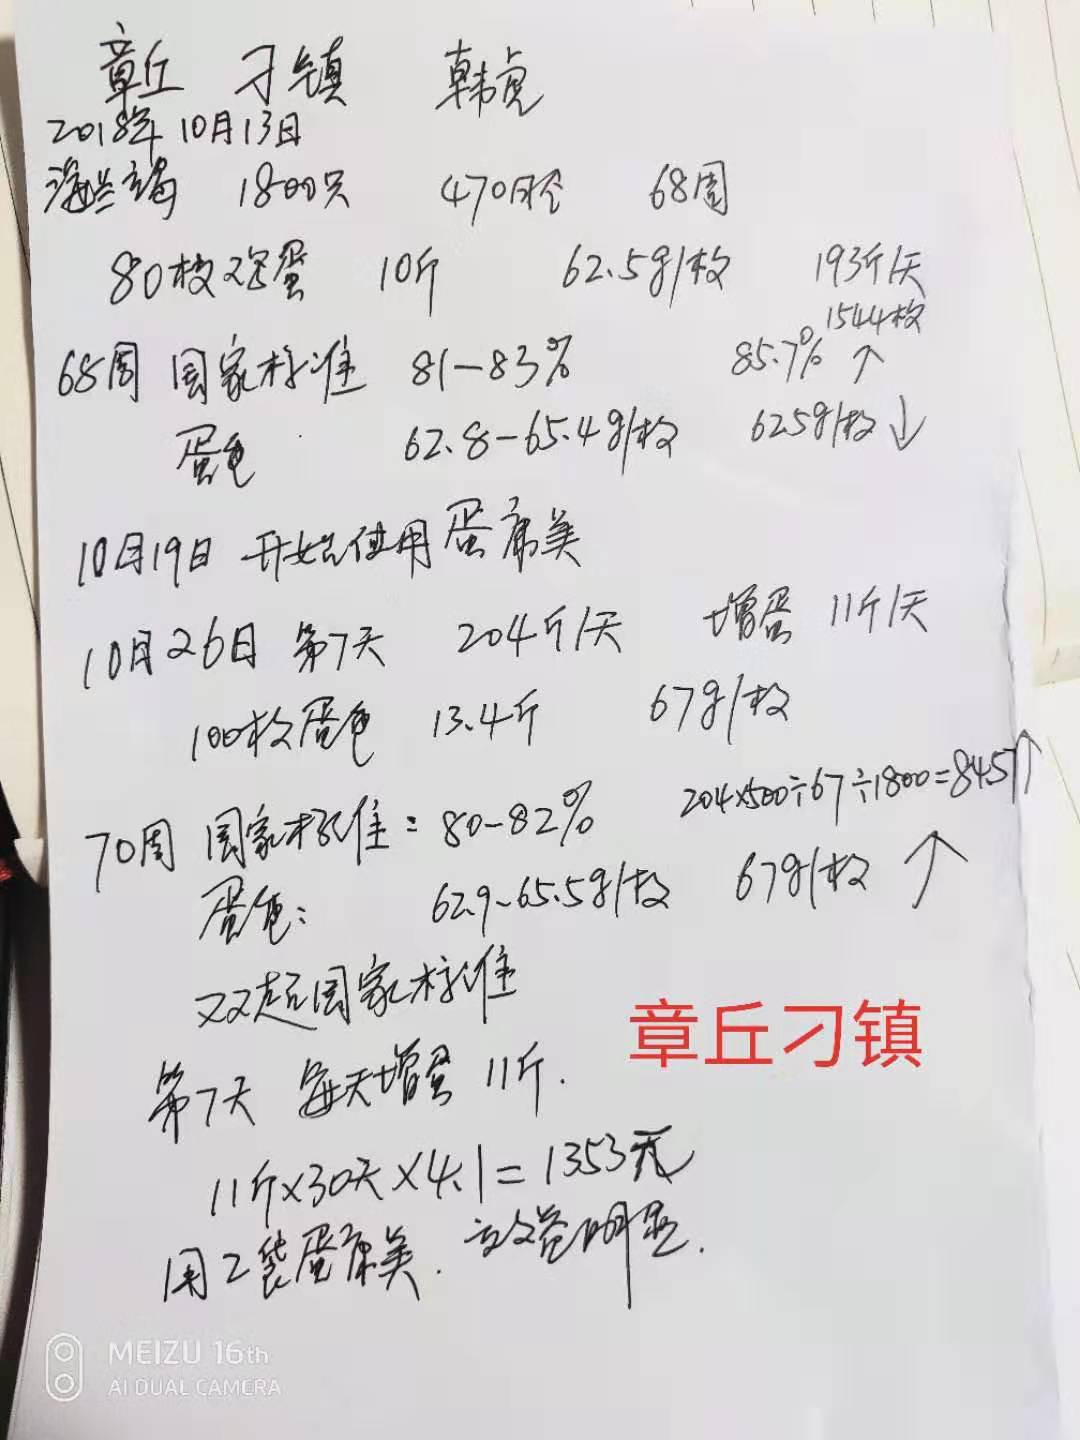 章丘 刁镇 韩虎
2018年10月13日
海兰褐 1800只 470日令 68周
80枚鸡蛋 10斤 62.5g/枚 193斤/天
1544枚
68周 国家标准 81-83% 85.7% ↑
蛋重 62.8-65.4g/枚 625g/枚 ↓
10月19日 开始使用蛋康美
10月26日 第7天 204斤/天 增蛋 11斤/天
100枚蛋重 13.4斤 67g/枚
204×500÷67÷1800=845 ↑
70周 国家标准: 80-82%
蛋重: 62.9-65.5g/枚 67g/枚 ↑
双超国家标准
章丘刁镇
第7天 每天增蛋 11斤.
11斤×30天×4.1=1353元
用2袋蛋康美. 效益明显.
MEIZU 16th
AI DUAL CAMERA